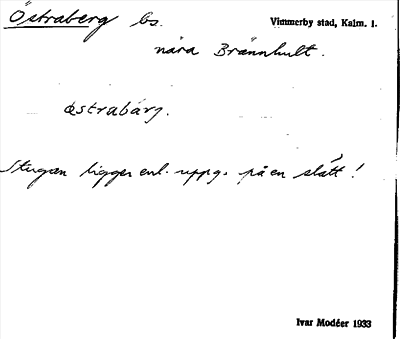 Östraberg bs. Vimmerby stad, Kalm. l.
nära Brännhult.
östrabärj.
Stugan ligger enl. uppg. på en slätt!
Ivar Modéer 1933